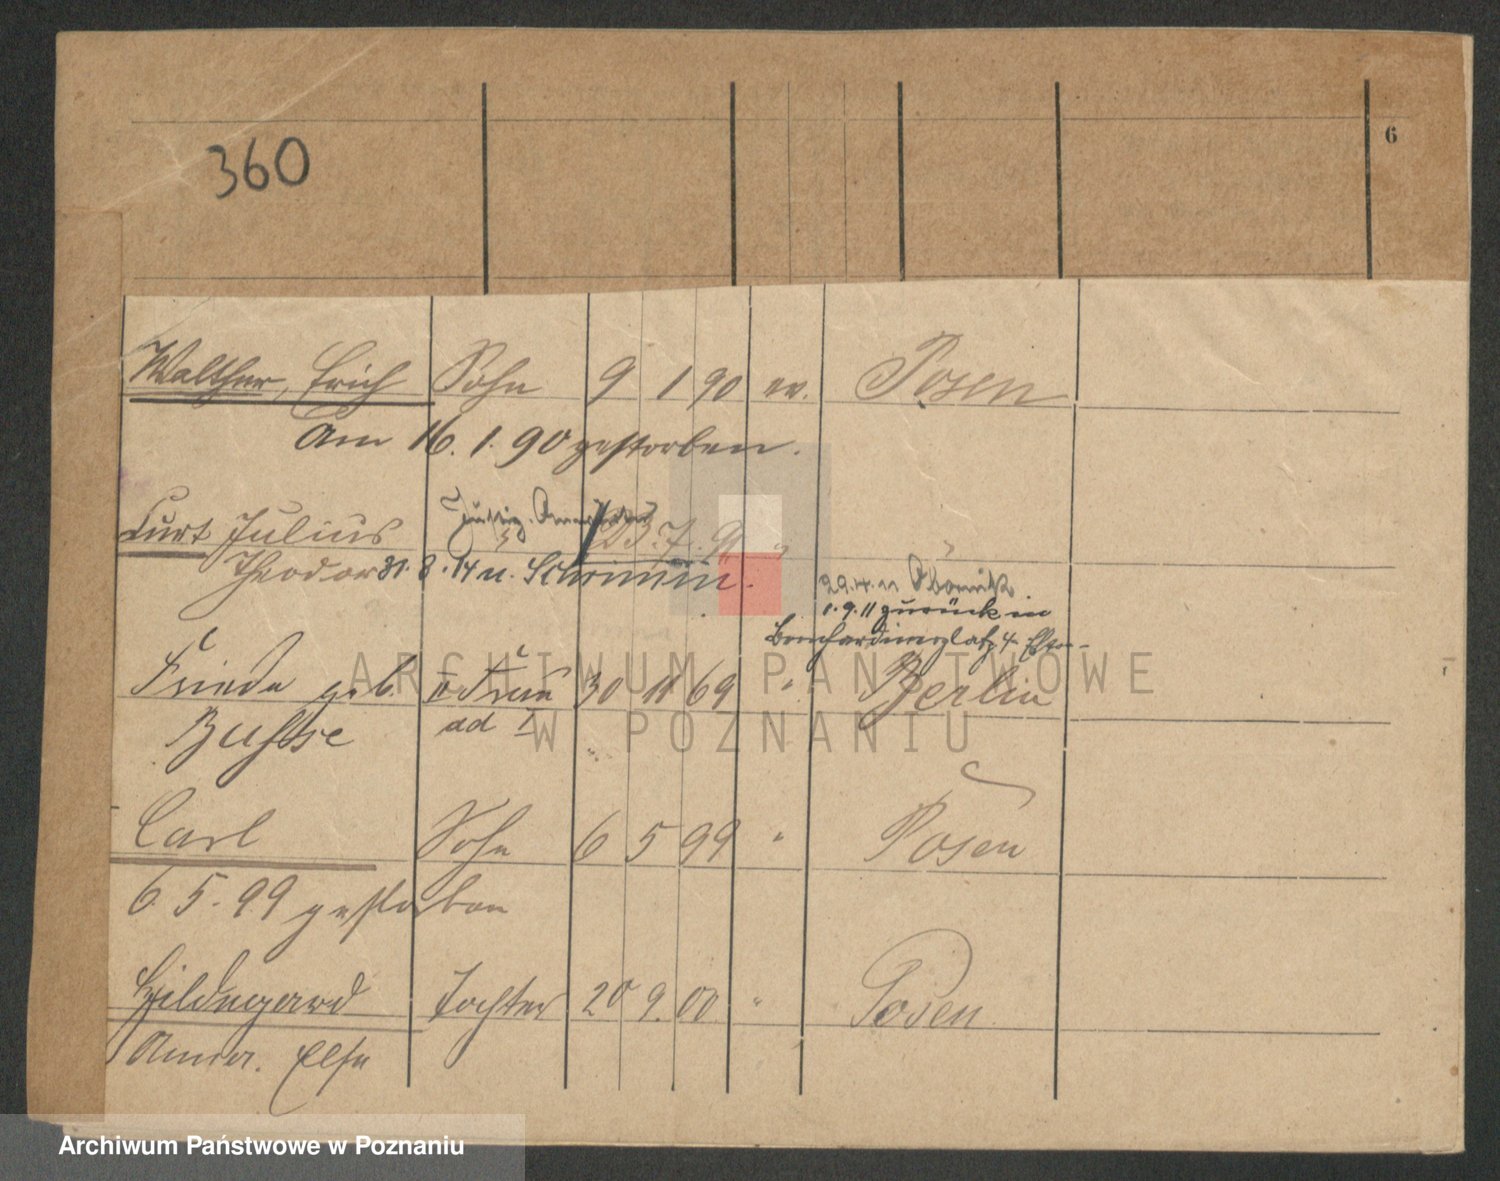 360
6
Walther, Erich Sohn 9 1 90 ev. Posen
Am 16. 1. 90 gestorben.
Curt Julius 23. 7. 91 "
Theodor 31. 8. 14 n. Schrimm.
29. 4. n Obornik
1. 9. 11 zurück in
Bernhardinerplatz 4
Frieda geb. II Frau 30 11 69 " Berlin
Buhse ad I
Carl Sohn 6 5 99 " Posen
6. 5. 99 gestorben
Hildegard Tochter 20 9. 00 " Posen
Anna. Else
ARCHIWUM PAŃSTWOWE
W POZNANIU
Archiwum Państwowe w Poznaniu